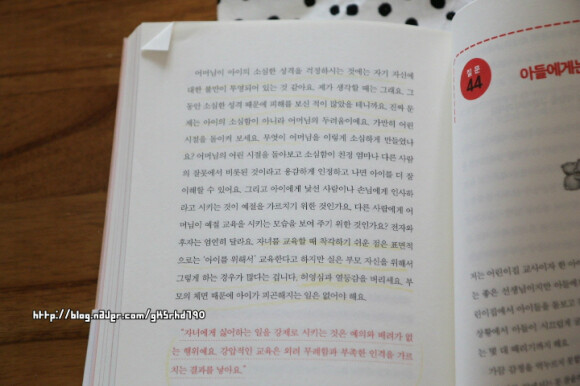 어머님이 아이의 소심한 성격을 걱정하시는 것에는 자기 자신에
대한 불만이 투영되어 있는 것 같아요. 제가 생각할 때는 그래요. 그
동안 소심한 성격 때문에 피해를 보신 적이 많았을 테니까요. 진짜 문
제는 아이의 소심함이 아니라 어머님의 두려움이에요. 가만히 어린
시절을 돌이켜 보세요. 무엇이 어머님을 이렇게 소심하게 만들었나
요? 어머님의 어린 시절을 돌아보고 소심함이 친정 엄마나 다른 사람
의 잘못에서 비롯된 것이라고 용감하게 인정하고 나면 아이를 더 잘
이해할 수 있어요. 그리고 아이에게 낯선 사람이나 손님에게 인사하
라고 시키는 것이 예절을 가르치기 위한 것인가요. 다른 사람에게 어
머님이 예절 교육을 시키는 모습을 보여 주기 위한 것인가요? 전자와
후자는 엄연히 달라요. 자녀를 교육할 때 착각하기 쉬운 점은 표면적
으로는 '아이를 위해서' 교육한다고 하지만 실은 부모 자신을 위해서
그렇게 하는 경우가 많다는 겁니다. 허영심과 열등감을 버리세요. 부
모의 체면 때문에 아이가 피곤해지는 일은 없어야 해요.
"자녀에게 싫어하는 일을 강제로 시키는 것은 예의와 배려가 없
는 행위예요. 강압적인 교육은 외려 무례함과 부족한 인격을 가르
치는 결과를 낳아요."
질문
44
아들에게는
저는 어린이집 교사이자 한 아이
는 좋은 선생님이지만
어린이집에서 아이들을 돌보고
상황에서 아이가 시끄럽게
는 몇 대 때리기까지 해요.
가끔 감정을
http://blog.naver.com/gk5rhd190